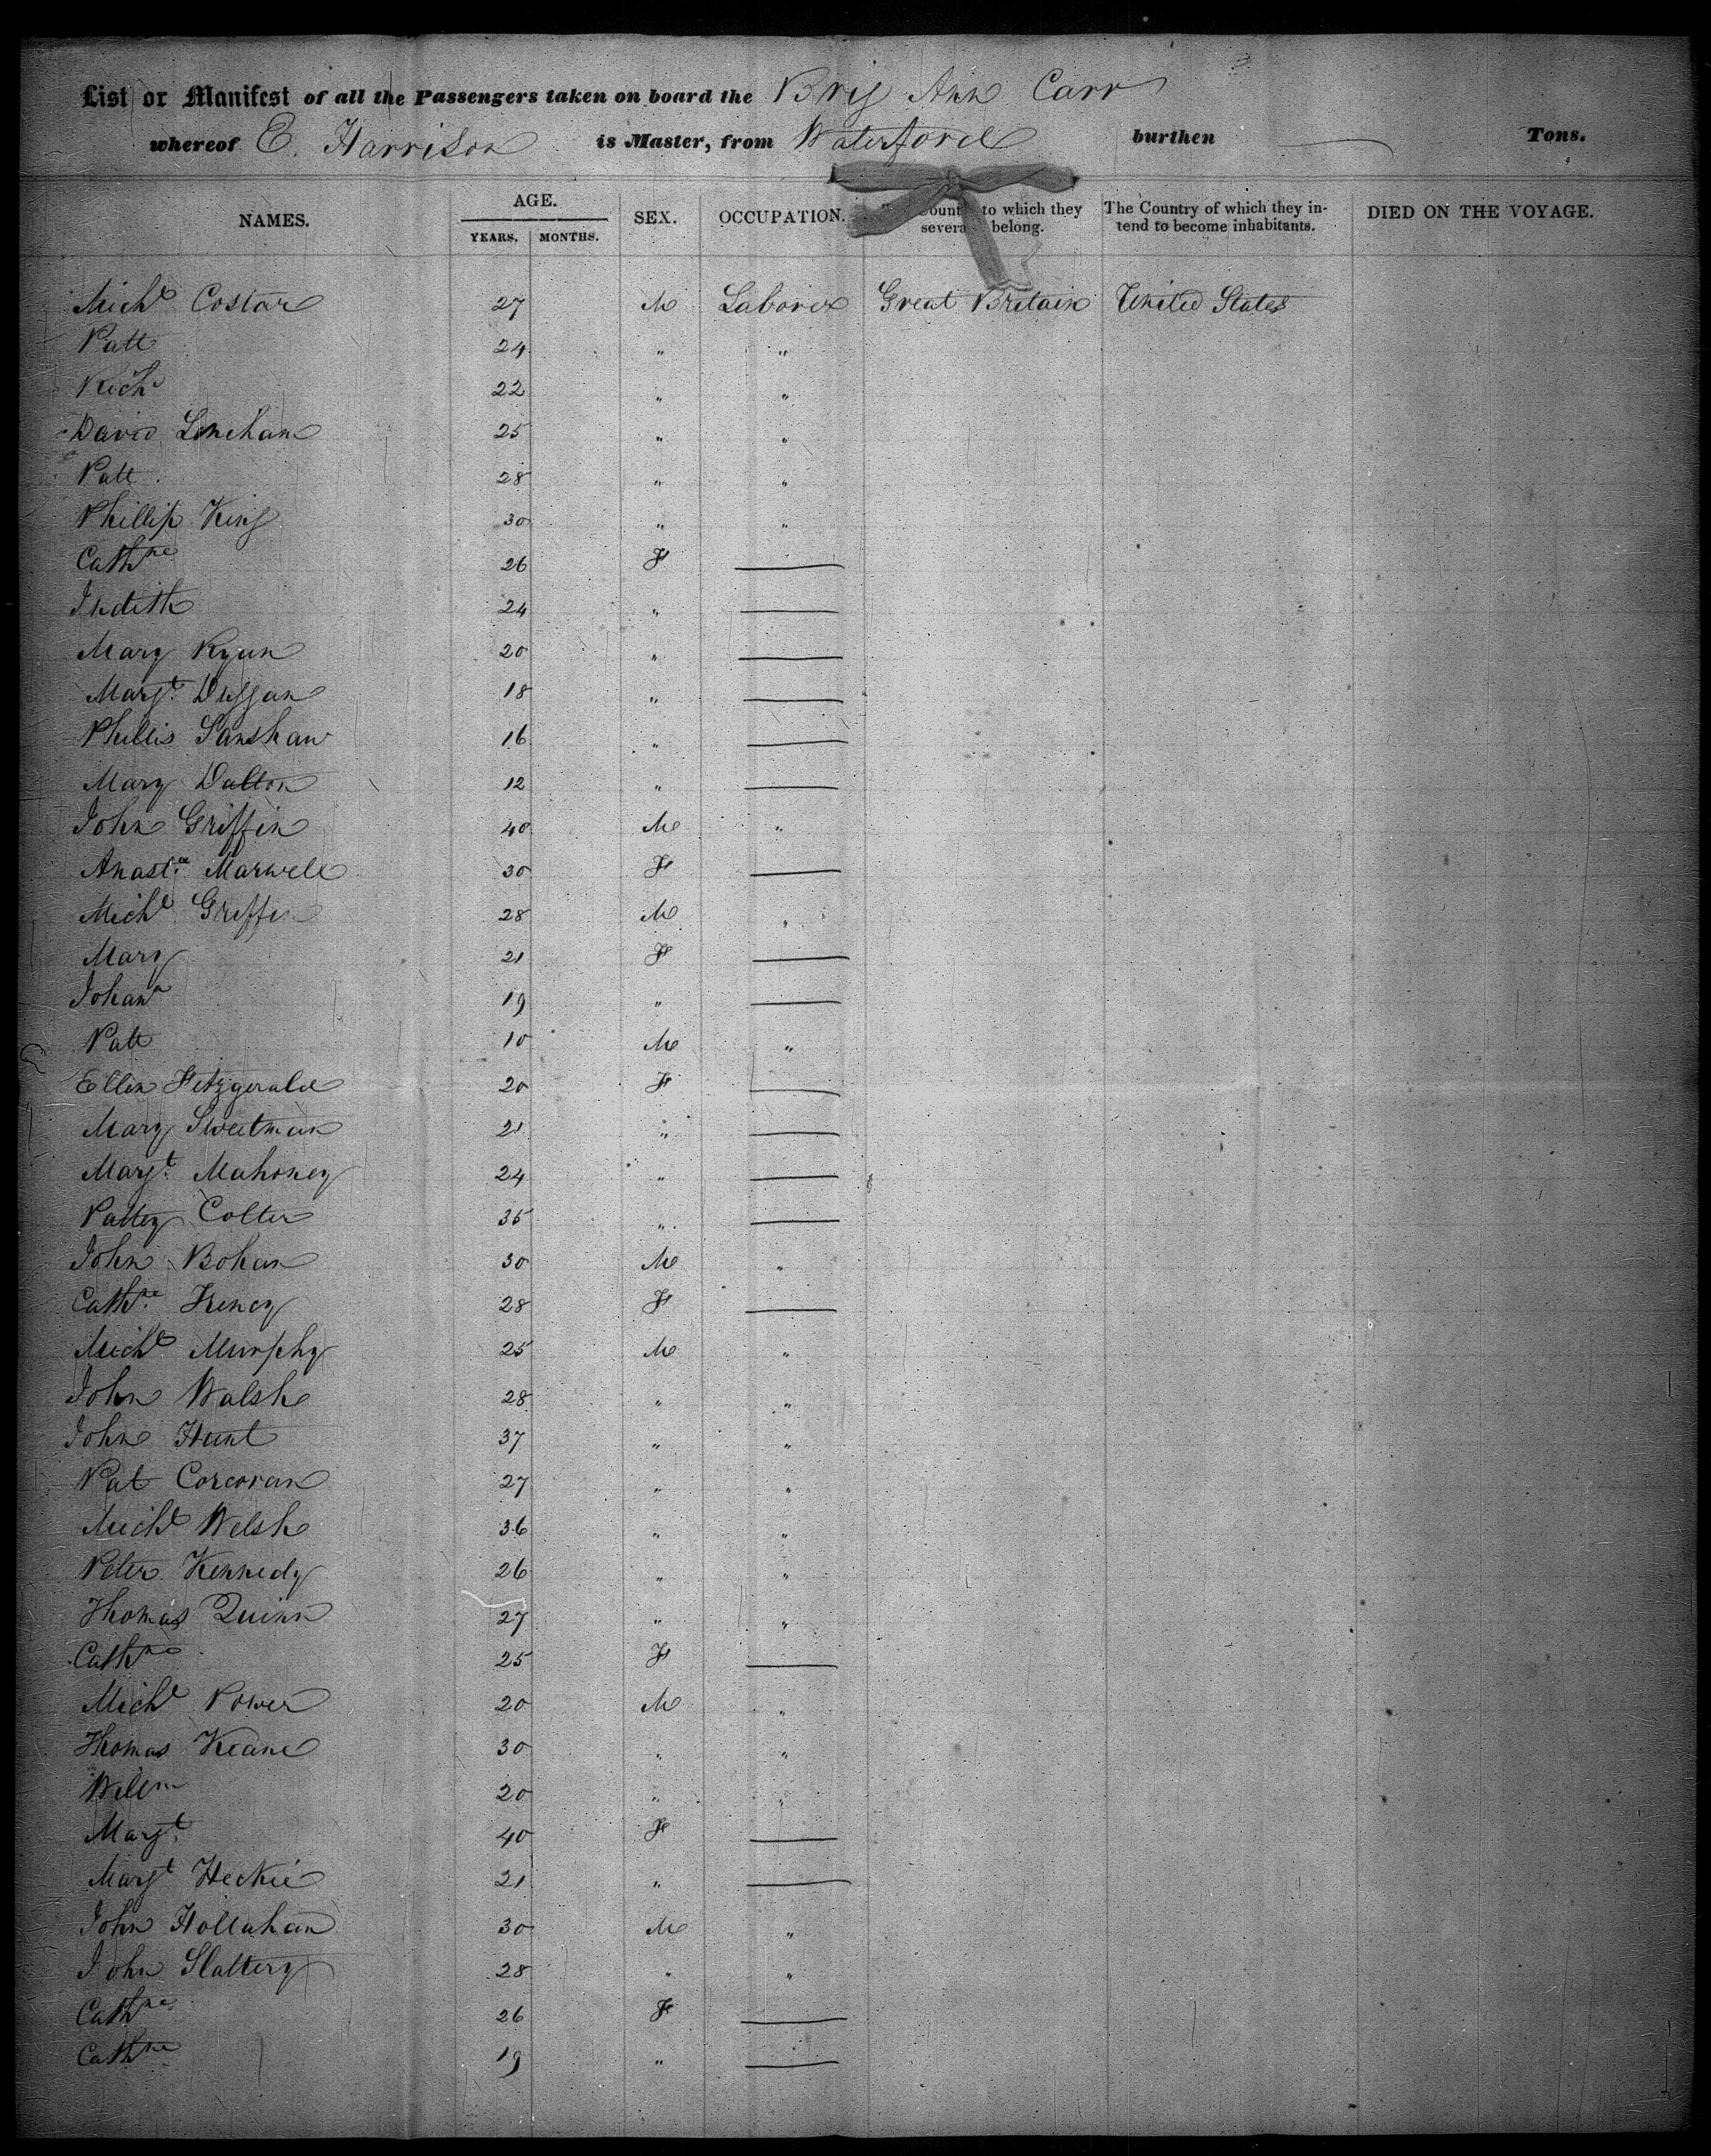 List or Manifest of all the Passengers taken on board the Brig Ann Carr
whereof E. Harrison is Master, from Waterford burthen — Tons.
NAMES. AGE. YEARS. MONTHS. SEX. OCCUPATION. Country to which they severally belong. The Country of which they intend to become inhabitants. DIED ON THE VOYAGE.
Michl Costar 27 M Laborer Great Britain United States
Patt 24 " "
Richd 22 " "
David Linehan 25 " "
Patt 28 " "
Phillip King 30 " "
Cathne 26 F —
Judith 24 " —
Mary Ryan 20 " —
Margt. Duggan 18 " —
Phillis Lanshaw 16 " —
Mary Dalton 12 " —
John Griffin 40 M "
Anasta. Marwell 30 F —
Michl Griffin 28 M "
Mary 21 F —
Johana 19 " —
Patt 10 M "
Ellen Fitzgerald 20 F —
Mary Sweetman 21 " —
Margt. Mahoney 24 " —
Pattey Colter 35 " —
John Bohan 30 M "
Cathne. Freney 28 F —
Michl Murphy 25 M "
John Walsh 28 " "
John Hunt 37 " "
Pat Corcoran 27 " "
Michl Welsh 36 " "
Peter Kennedy 26 " "
Thomas Quinn 27 " "
Cathne 25 F —
Michl Power 20 M "
Thomas Keane 30 " "
Willm 20 " "
Margt. 40 F —
Margt Heckie 21 " —
John Hollahan 30 M "
John Slattery 28 " "
Cathne 26 F —
Cathne 19 " —